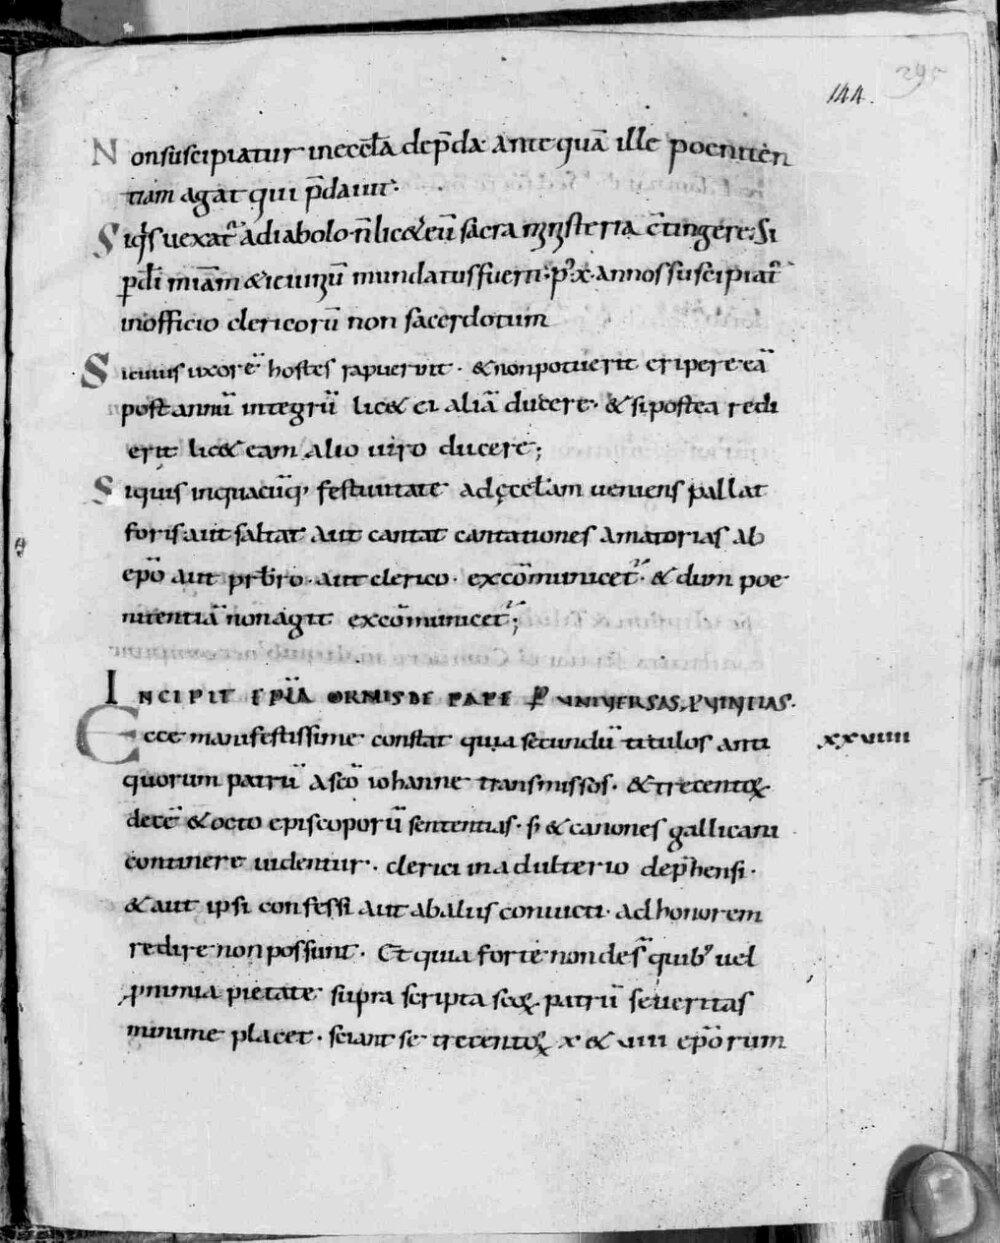 295
144.
Non suscipiatur in eccl̄a dep̄da ante quā ille poeniten
tiam agat qui p̄dauit.
Siq̄s uexat̄ a diabolo n̄ licet eū sacra mysteria c̄tingere. Si
ꝑ dī miām & ieiuniū mundatus fuerit. p̄ x. annos suscipiat̄
in officio clericorū non sacerdotum
Si cuius uxorē hostes rapuerunt. & non potuerit eripere eā
post annū integrū lic& ei aliā ducere. & si postea redi
erit lic& eam alio uiro ducere;
Si quis in quacūq; festiuitate ad ęccl̄am ueniens pallat
foris aut saltat aut cantat cantationes amatorias ab
ep̄o aut pr̄bro. aut clerico. excōmunicet̄. & dum poe
nitentiā non agit excōmunicet̄;
INCIPIT EPLĀ ORMISDE PAPE P̄ UNIUERSAS PROUINTIAS.
Ecce manifestissime constat quia secundū titulos anti
xxuiiii
quorum patrū a sc̄o iohanne transmissos. & trecentoꝝ
decē & octo episcoporū sententias. s; & canones gallicani
continere uidentur. clerici in adulterio dep̄hensi.
& aut ipsi confessi aut ab aliis conuicti. ad honorem
redire non possunt. Et quia forte non des̄ quib; uel
ꝓ nimia pietate supra scripta sc̄oꝝ patrū seueritas
minime placet. sciant se trecentoꝝ x & uiii ep̄orum